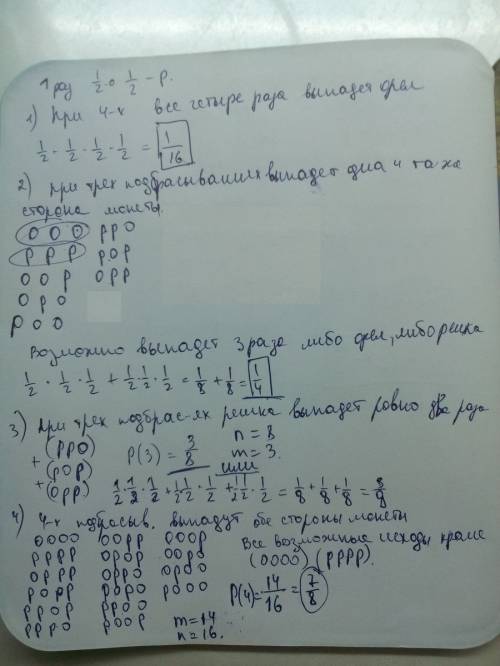 1 раз 1/2 - о 1/2 - р.
1) При 4-х все четыре раза выпадет орел
1/2 · 1/2 · 1/2 · 1/2 = 1/16
2) при трех подбрасываниях выпадет одна и та же
сторона монеты.
о о о р р о
р р р р о р
о о р о р р
о р о
р о о
Возможно выпадет 3 раза либо орел, либо решка
1/2 · 1/2 · 1/2 + 1/2 · 1/2 · 1/2 = 1/8 + 1/8 = 1/4
3) При трех подбрас-ях решка выпадет ровно два раза
(рро) n = 8
+ (рор) P(3) = 3/8 m = 3.
+ (орр) или
1/2 · 1/2 · 1/2 + 1/2 · 1/2 · 1/2 + 1/2 · 1/2 · 1/2 = 1/8 + 1/8 + 1/8 = 3/8
4) 4-х подбрасыв. выпадут обе стороны монеты
оооо оорр ооор Все возможные исходы кроме
рррр орор ооро (оооо) (рррр).
оррр орро ороо P(4) = 14/16 = 7/8
рорр роро рооо
ррор рроо
ррро роор m = 14
n = 16.